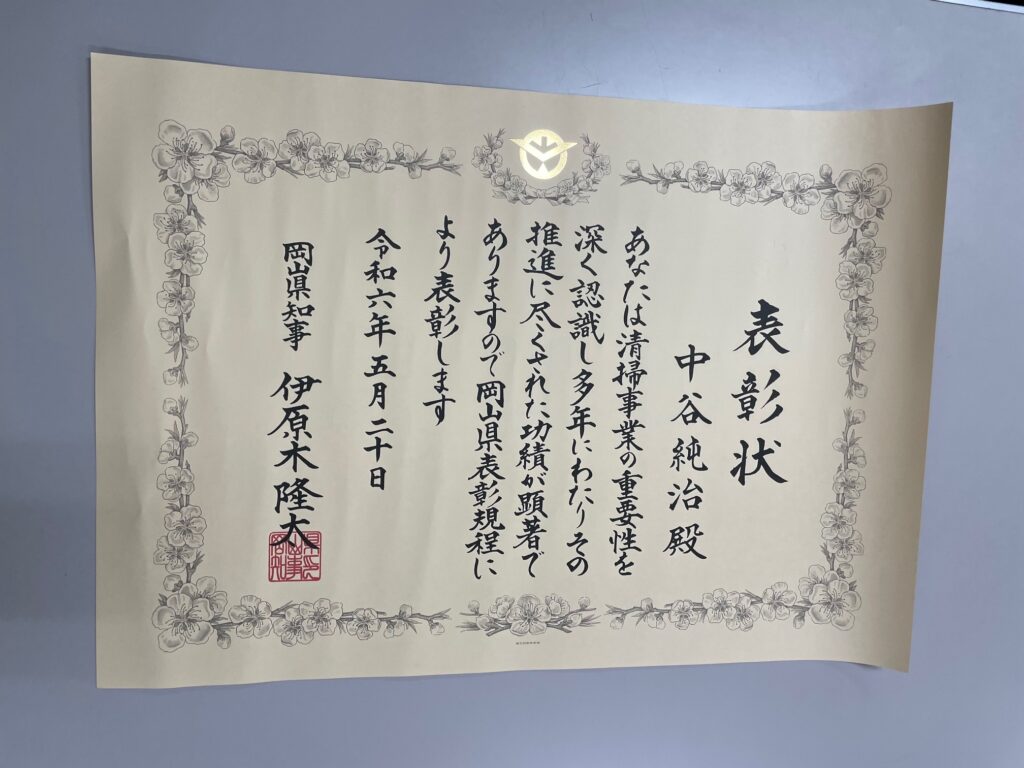 表彰状
中谷純治殿
あなたは清掃事業の重要性を
深く認識し多年にわたりその
推進に尽くされた功績が顕著で
ありますので岡山県表彰規程に
より表彰します
令和六年五月二十日
岡山県知事 伊原木隆太